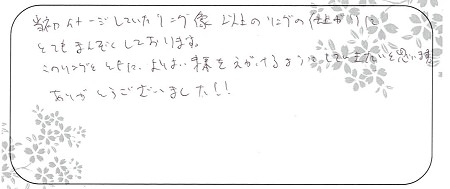 当初イメージしていたリング像以上のリングの仕上がりに
とてもまんぞくしております。
このリングとともに、よりよい様をえがけるようにしていきたいと思います
ありがとうございました!!